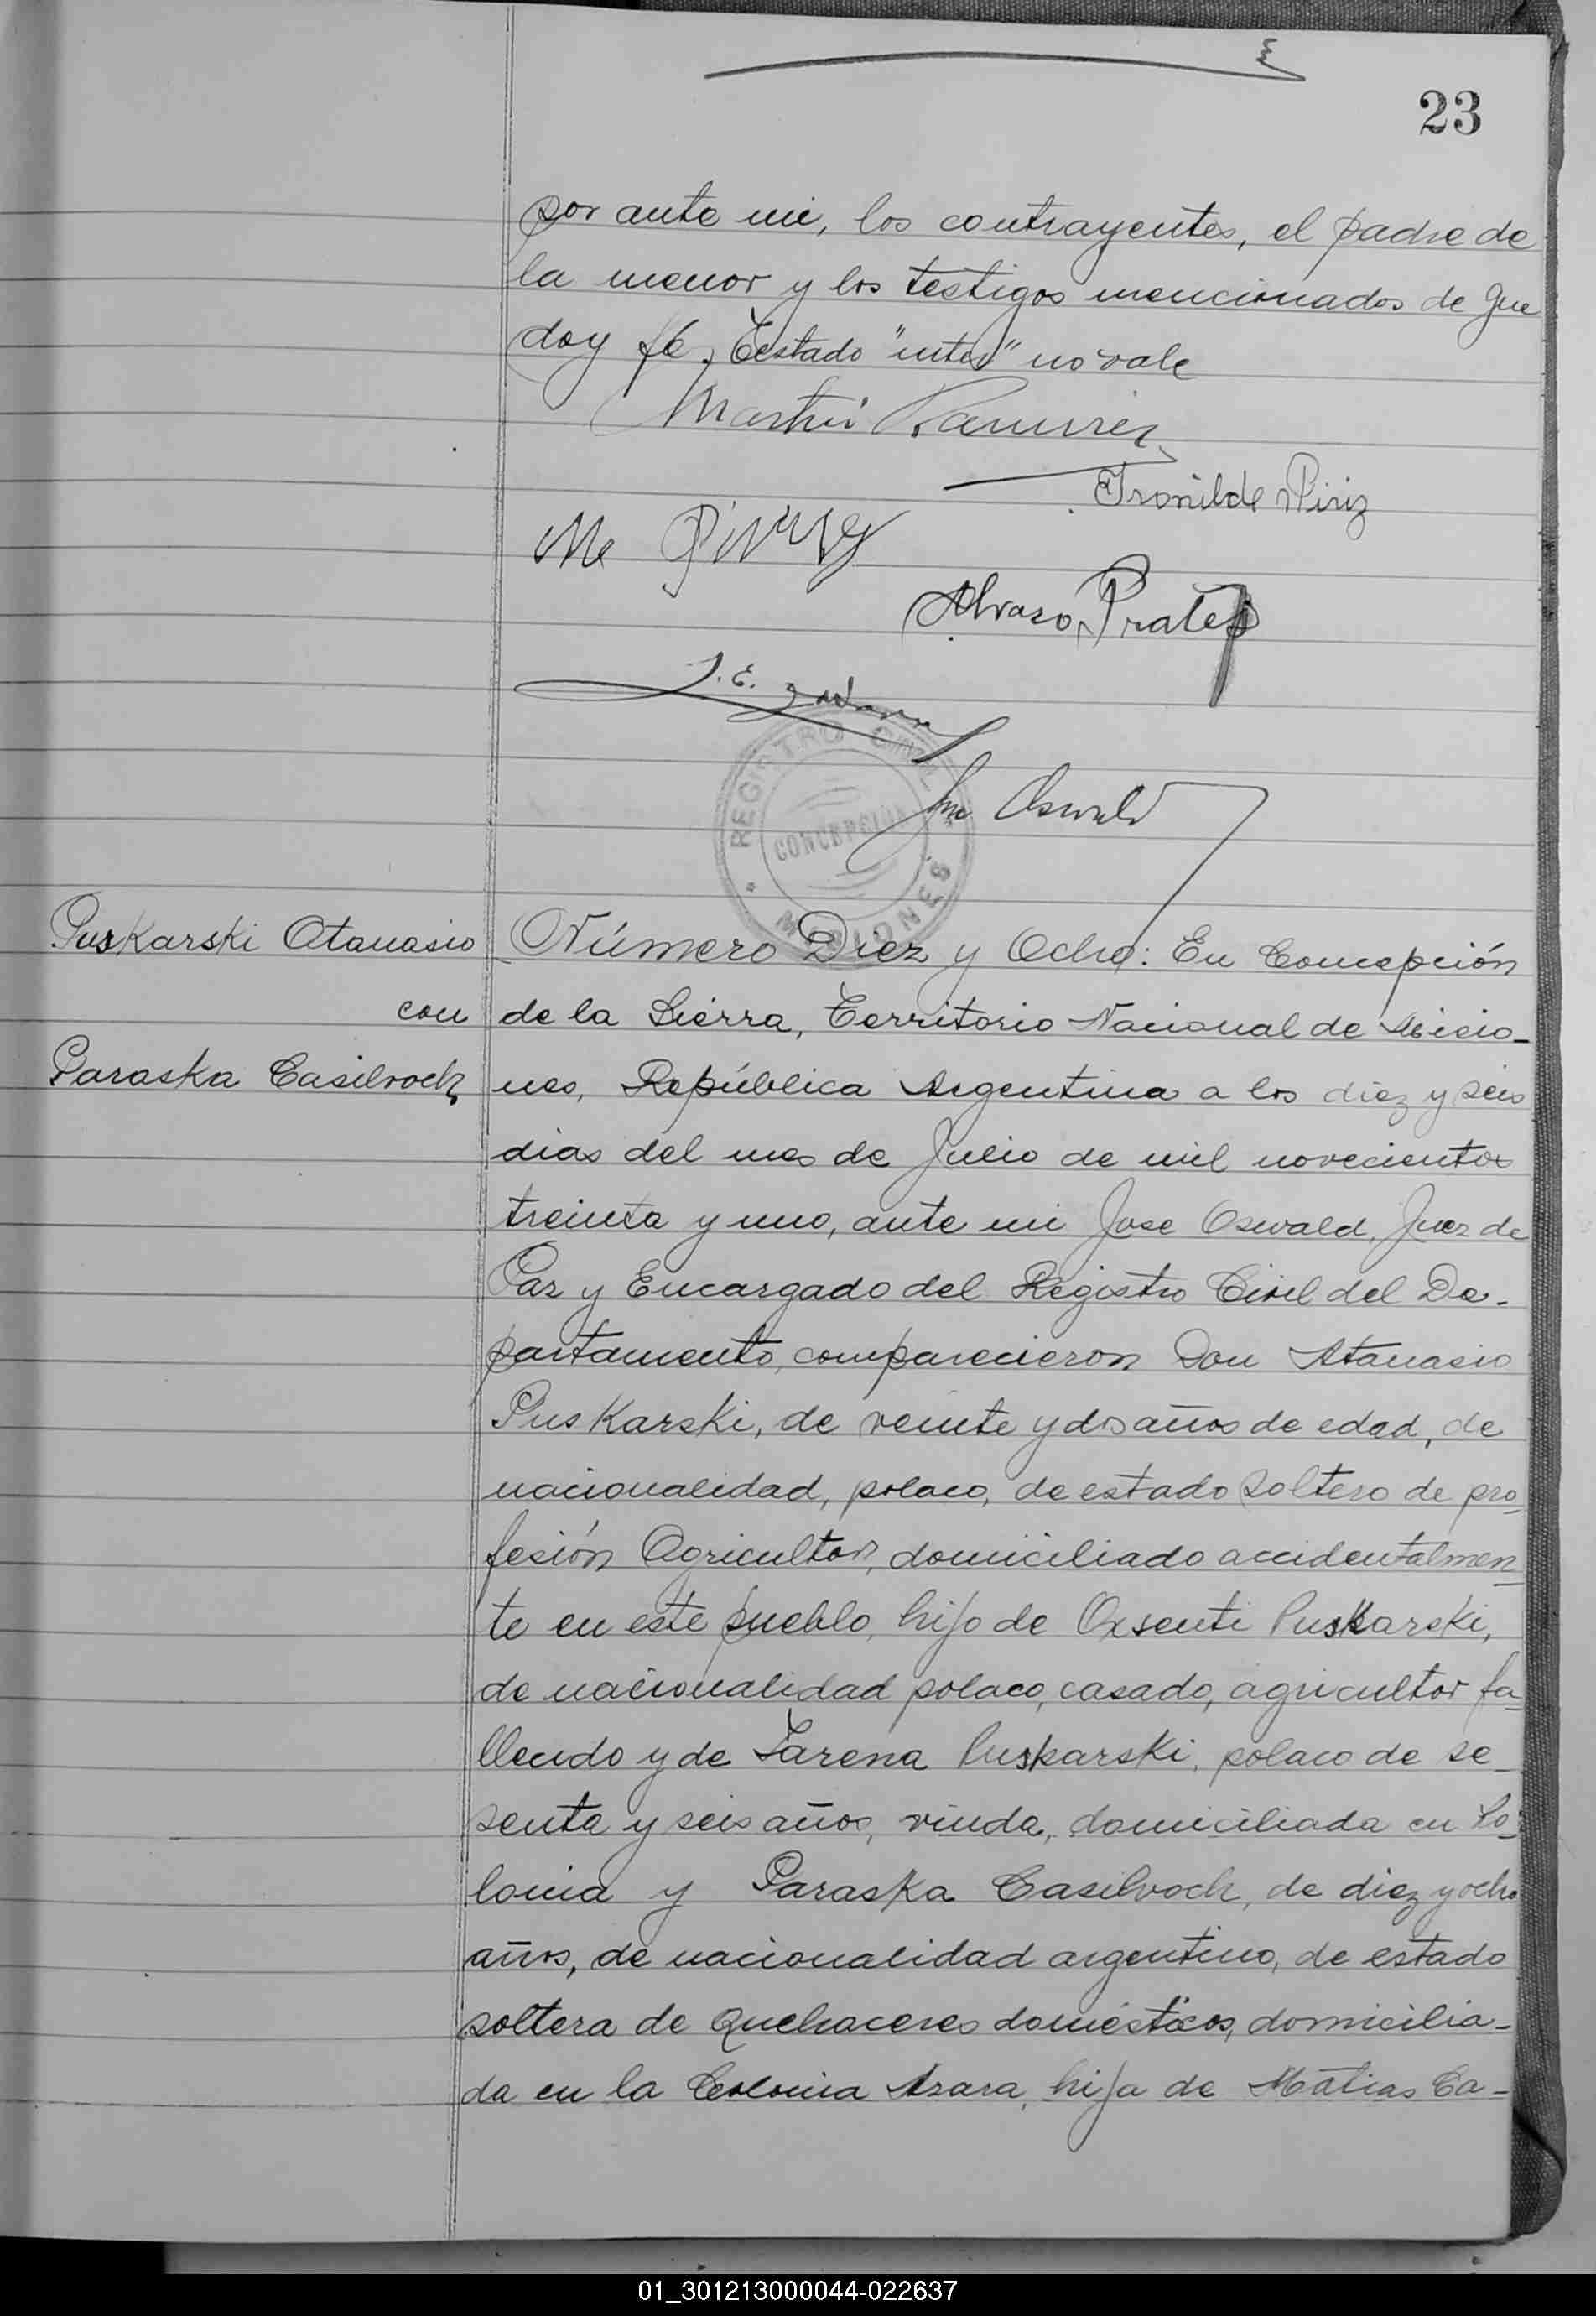 23
por ante mi, los contrayentes, el padre de
la menor y los testigos mencionados de que
doy fé. Testado "inter" no vale
Martín Ramirez
Ironilde Piriz
M Piriz
Alvaro Prates
J. E.
Oswald
REGISTRO CIVIL
CONCEPCIÓN
MISIONES
Puskarski Atanasio
con
Paraska Casilvoch
Número Diez y Ocho: En Concepción
de la Sierra, Territorio Nacional de Misio-
nes, República Argentina a los diez y seis
dias del mes de Julio de mil novecientos
treinta y uno, ante mi Jose Oswald, Juez de
Paz y Encargado del Registro Civil del De-
partamento, comparecieron Don Atanasio
Puskarski, de veinte y dos años de edad, de
nacionalidad, polaco, de estado soltero de pro-
fesión Agricultor, domiciliado accidentalmen-
te en este pueblo, hijo de Oxsenti Puskarski,
de nacionalidad polaco, casado, agricultor fa-
llecido y de Tarena Puskarski, polaco de se-
senta y seis años, viuda, domiciliada en Po-
lonia y Paraska Casilvoch, de diez y ocho
años, de nacionalidad argentino, de estado
soltera de quehaceres domésticos, domicilia-
da en la Colonia Azara, hija de Matias Ca-
01_301213000044-022637